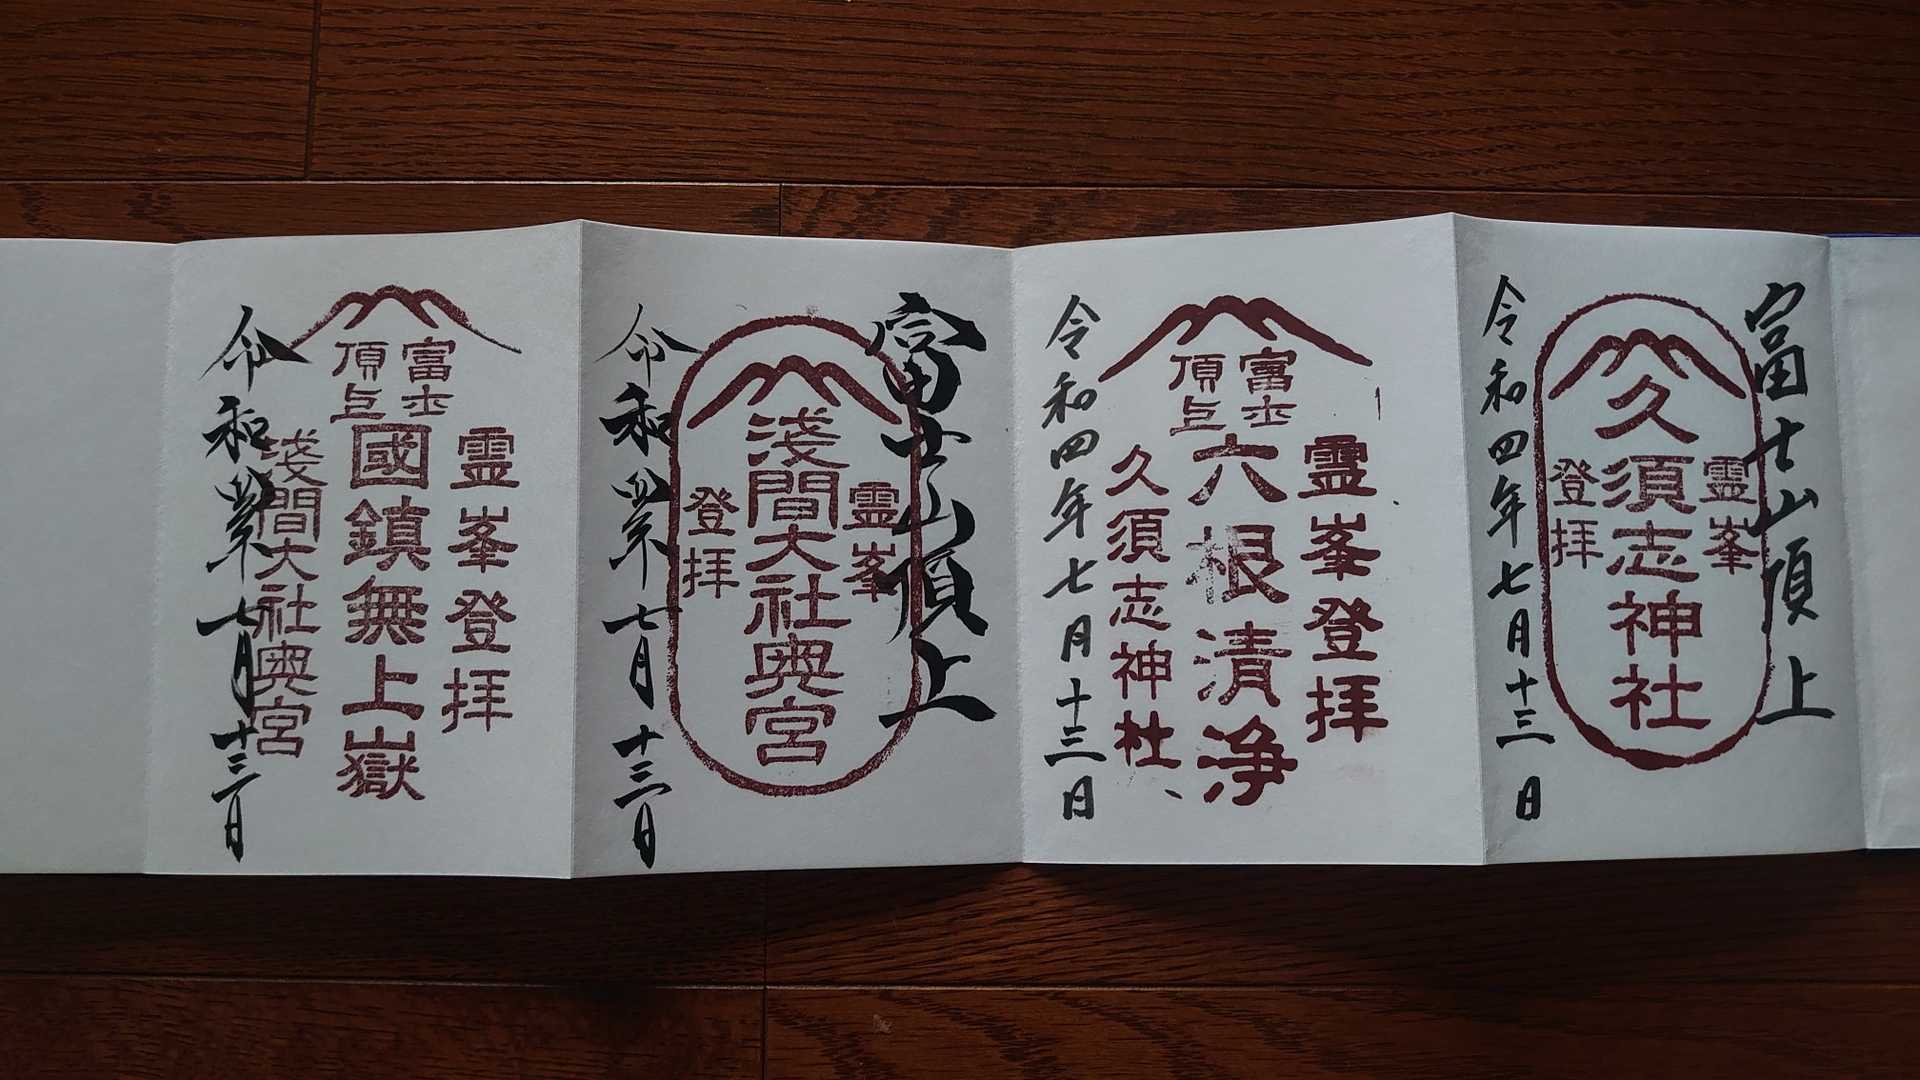 富士山頂上
霊峯
久須志神社
登拝
令和四年七月十三日
富士
頂上
霊峯登拝
六根清浄
久須志神社
令和四年七月十三日
富士山頂上
霊峯
淺間大社奥宮
登拝
令和四年七月十三日
富士
頂上
霊峯登拝
國鎮無上嶽
淺間大社奥宮
令和四年七月十三日